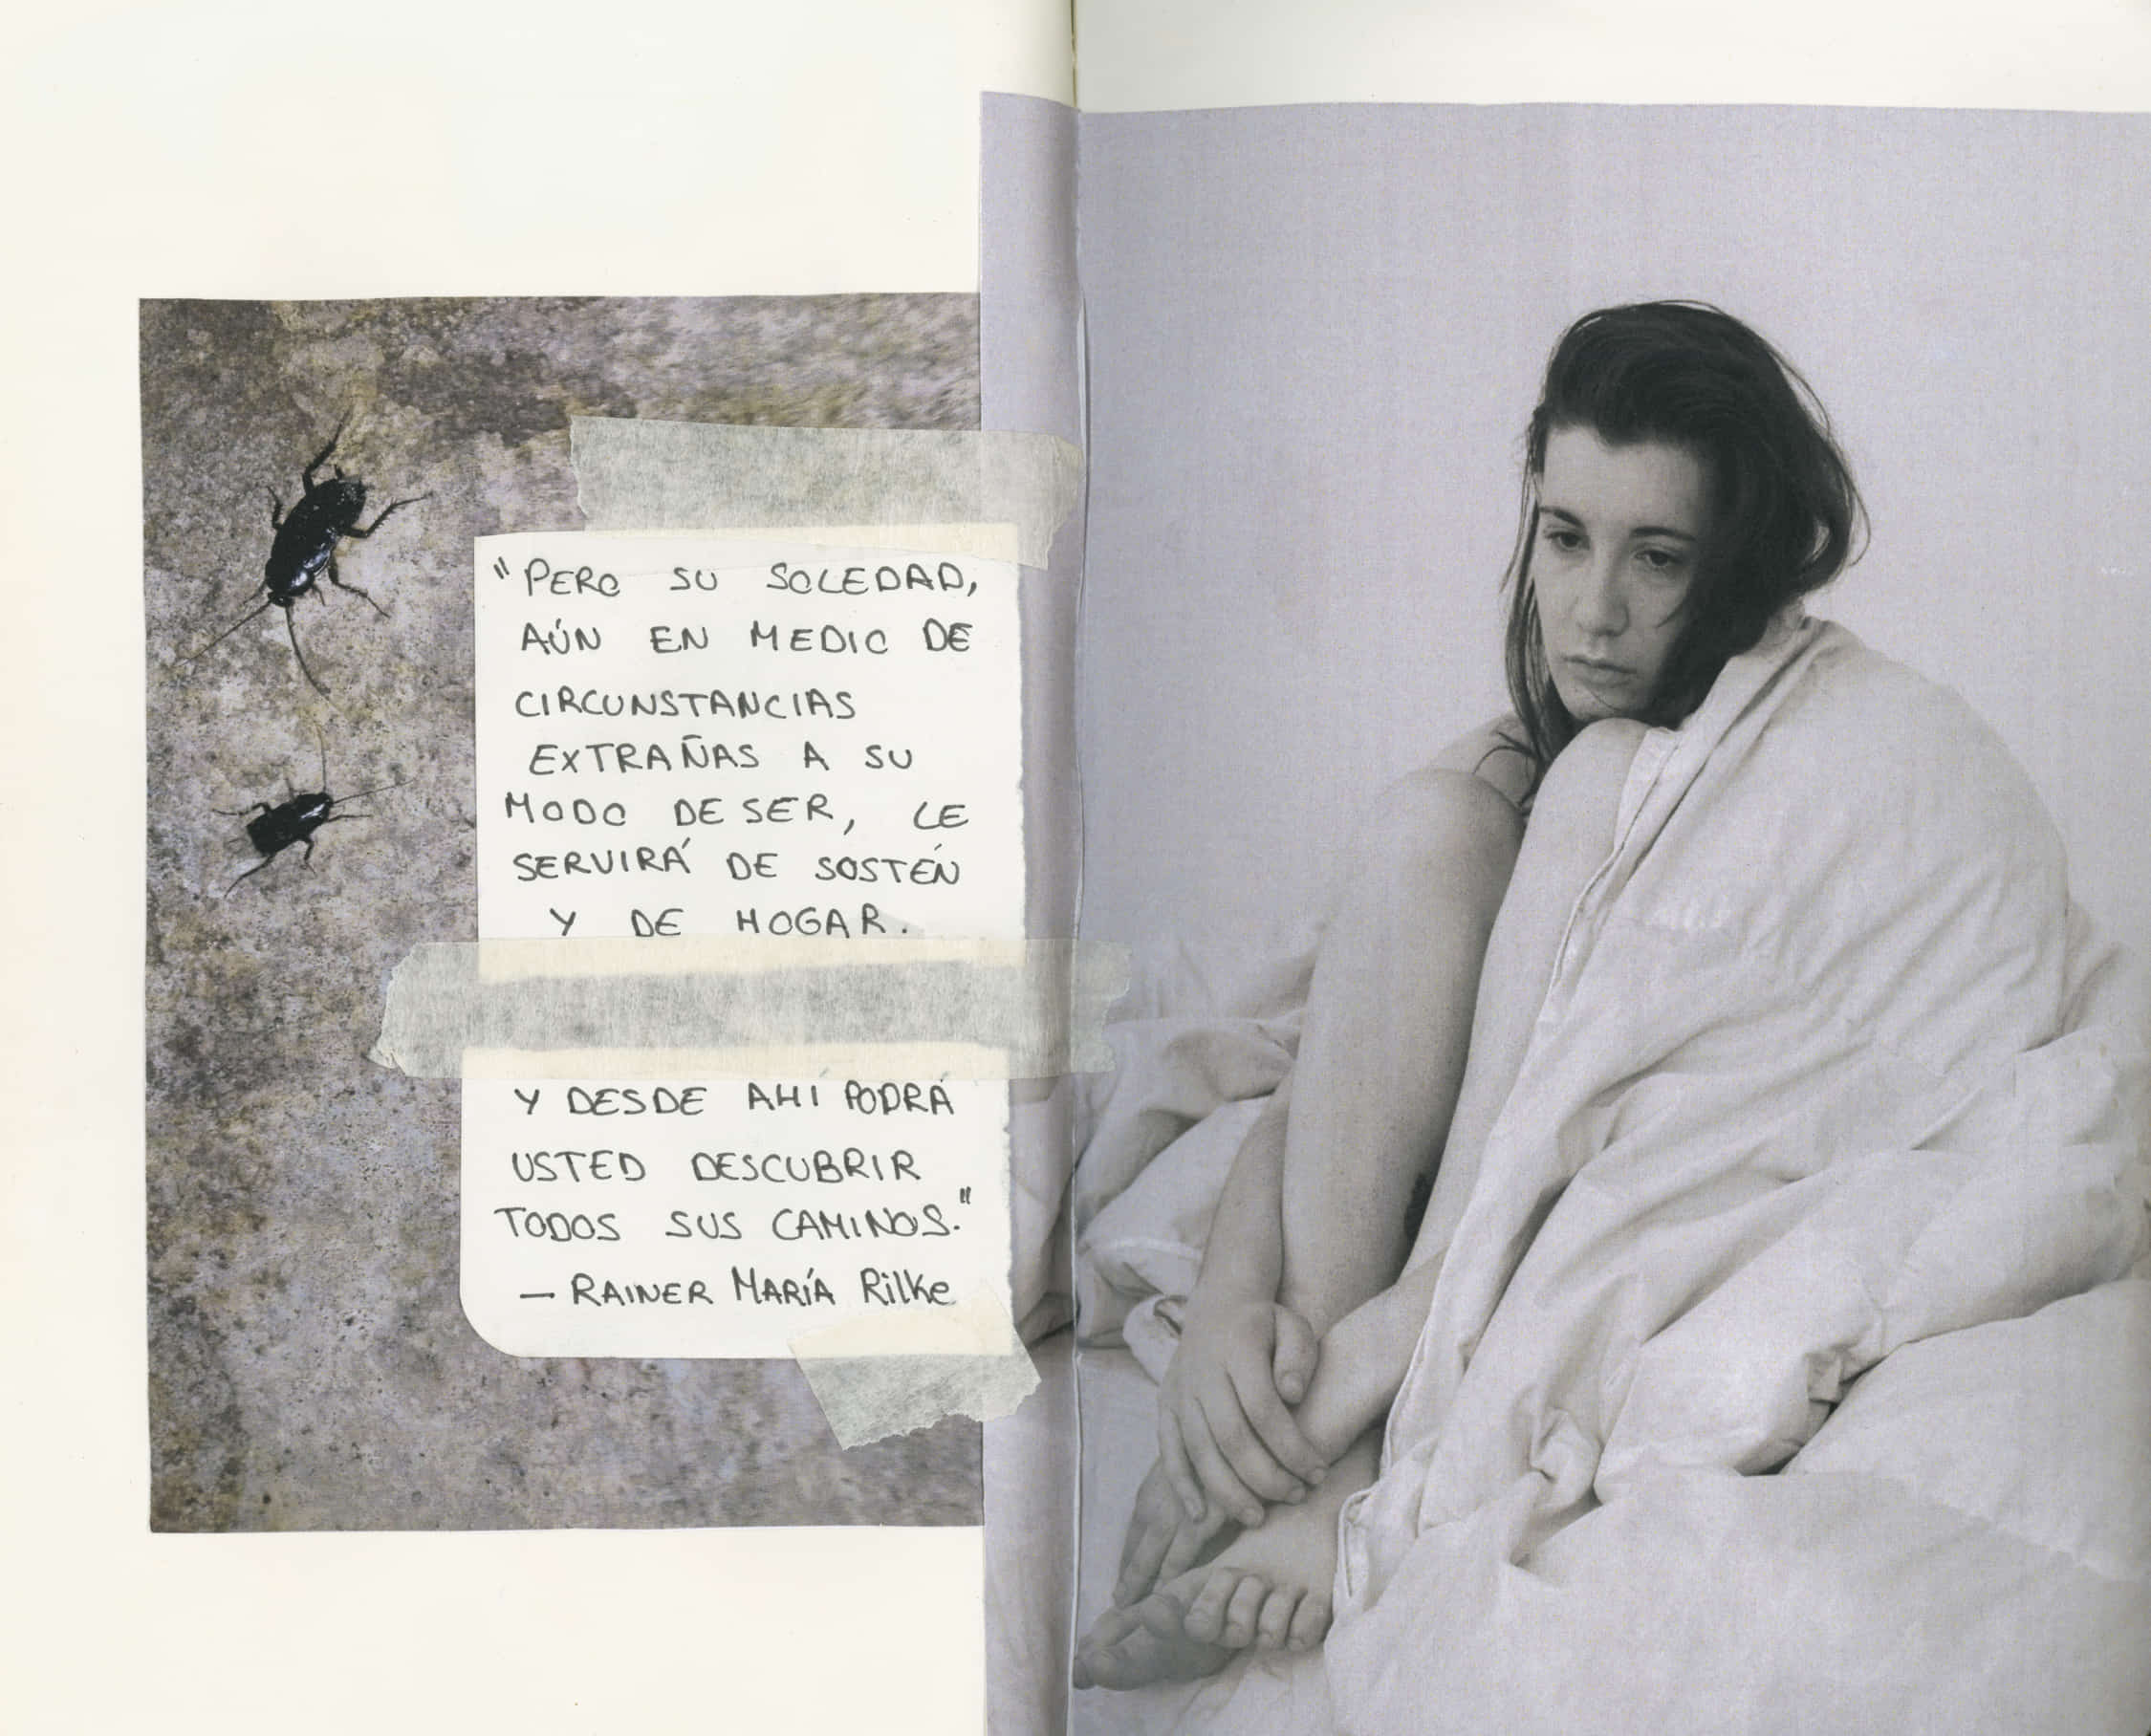 "PERO SU SOLEDAD,
AÚN EN MEDIO DE
CIRCUNSTANCIAS
EXTRAÑAS A SU
MODO DE SER, LE
SERVIRÁ DE SOSTÉN
Y DE HOGAR.
Y DESDE AHI PODRÁ
USTED DESCUBRIR
TODOS SUS CAMINOS."
— RAINER MARÍA Rilke